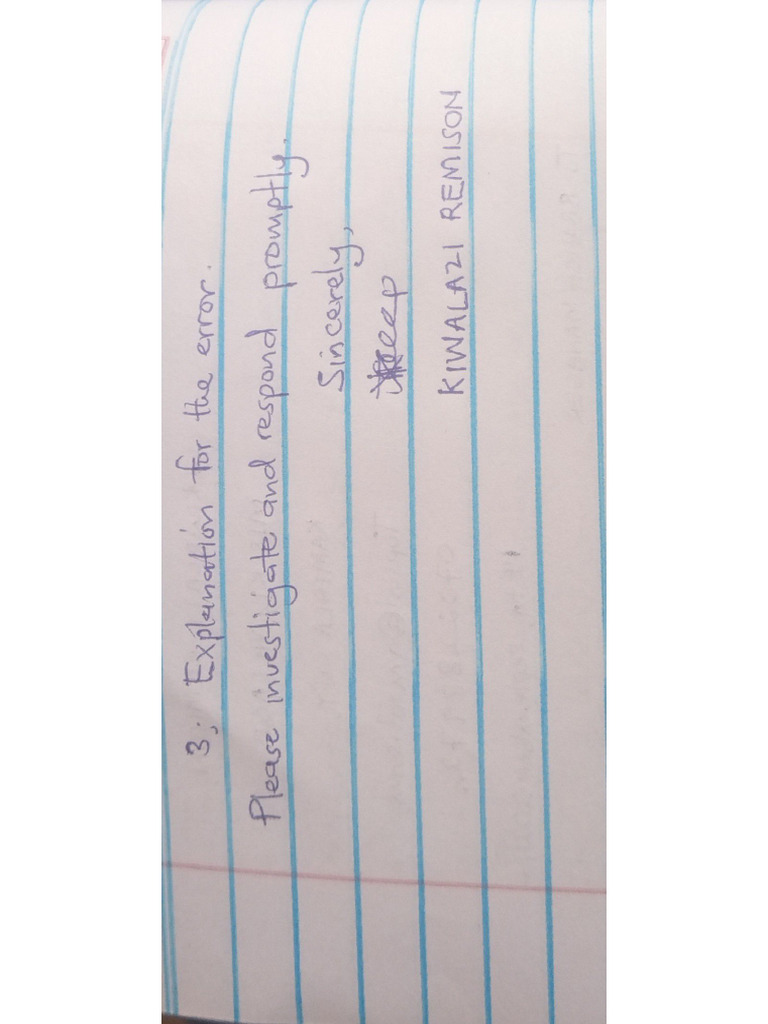 3; Explanation for the error.
Please investigate and respond promptly.
Sincerely,
KIWALAZI REMISON